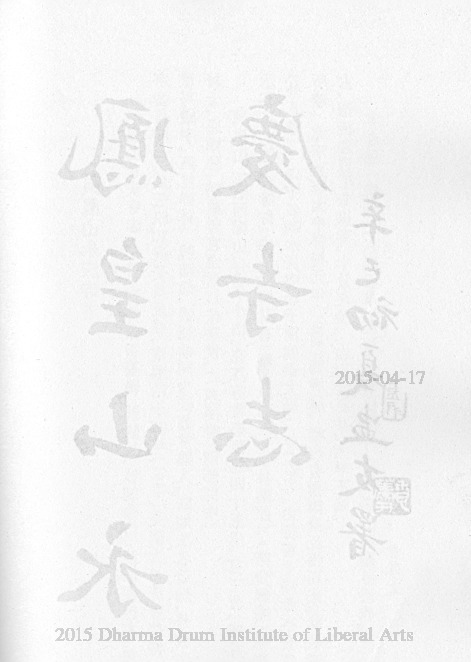 鳳皇山永
慶寺志
辛巳初夏
2015-04-17
2015 Dharma Drum Institute of Liberal Arts